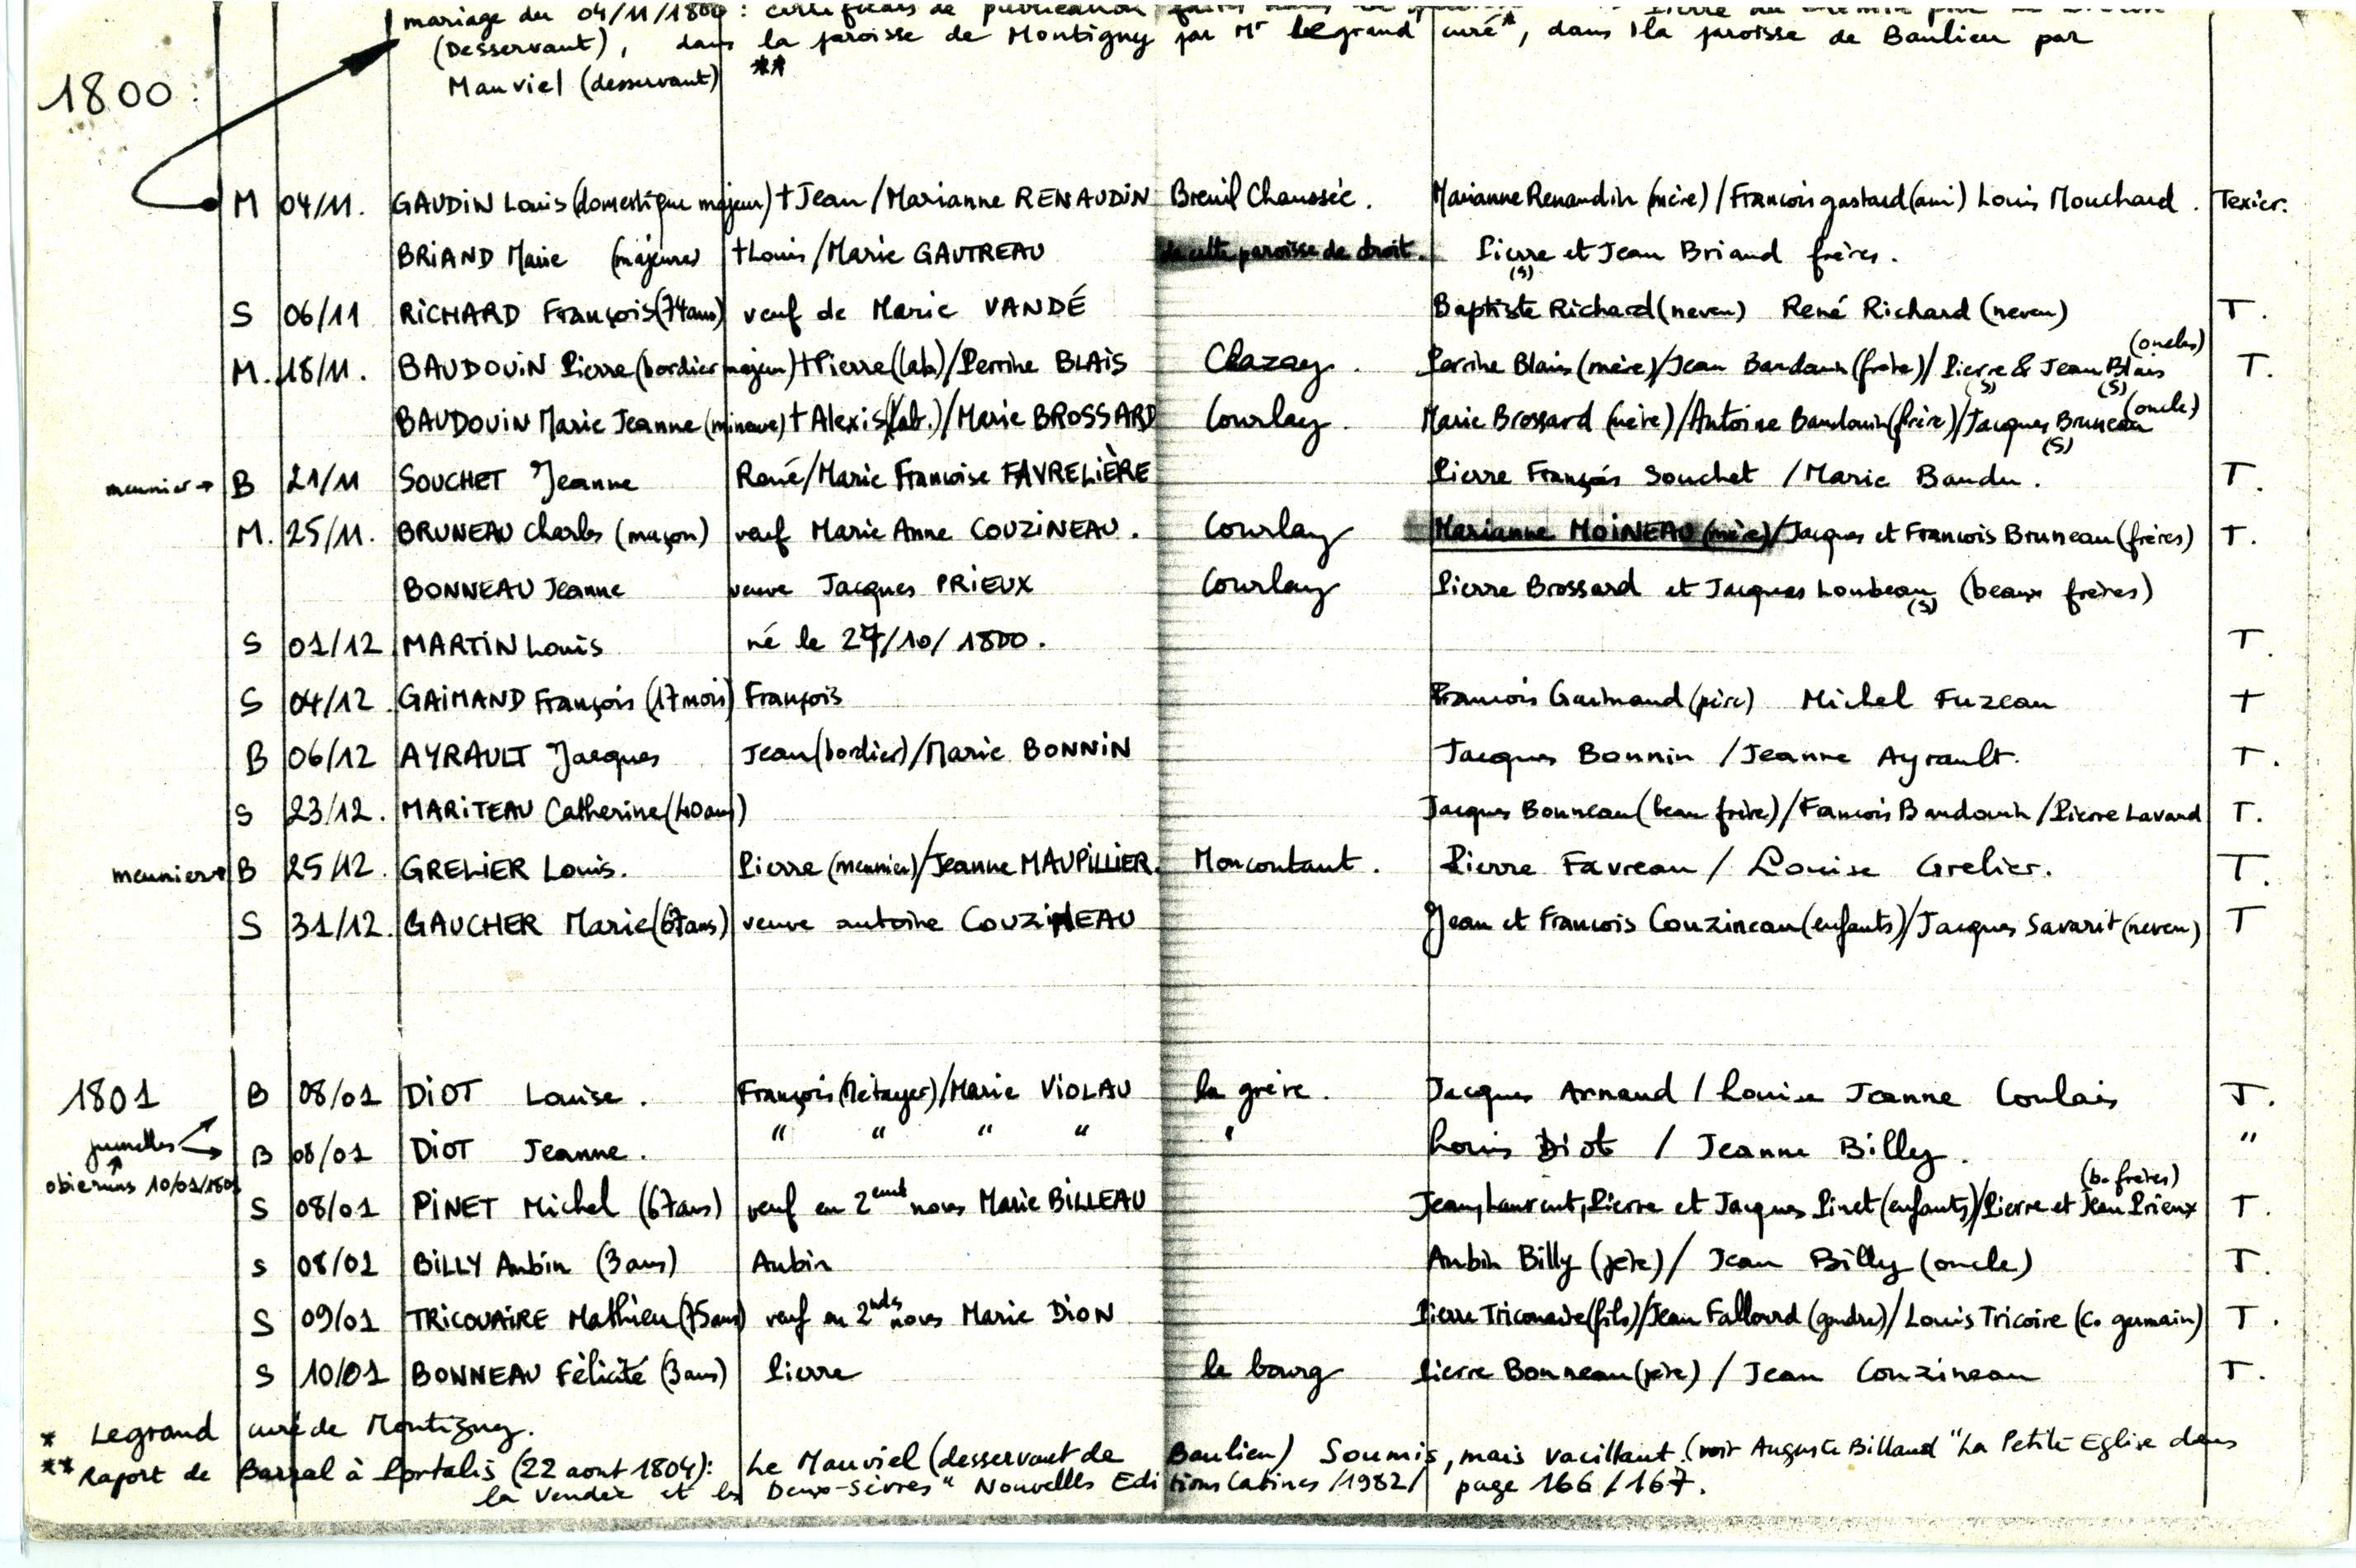 mariage du 04/11/1800 : certificats de publication
(Desservant), dans la paroisse de Montigny par Mr Legrand curé*, dans la paroisse de Baulieu par
Mauviel (desservant) **
1800 :
M 04/11. GAUDIN Louis (domestique majeur) †Jean/Marianne RENAUDIN Breuil Chaussée. Marianne Renaudin (mère)/Francois gastard (ami) Louis Mouchard. Texier.
BRIAND Marie (majeure) †Louis/Marie GAUTREAU de cette paroisse de droit. Pierre et Jean Briand frères.
(s)
S 06/11 RICHARD François (74ans) veuf de Marie VANDÉ Baptiste Richard (neveu) René Richard (neveu) T.
M. 18/11. BAUDOUIN Pierre (bordier majeur) †Pierre (lab)/Perrine BLAIS Chazay. Perrine Blais (mère)/Jean Baudouin (frère)/Pierre & Jean Blais (oncles) T.
(s) (s)
BAUDOUIN Marie Jeanne (mineure) †Alexis (lab.)/Marie BROSSARD Courlay. Marie Brossard (mère)/Antoine Baudouin (frère)/Jacques Bruneau (oncle)
(s)
meunier → B 21/11 SOUCHET Jeanne René/Marie Francoise FAVRELIÈRE Pierre François Souchet / Marie Baudu. T.
M. 25/11. BRUNEAU Charles (maçon) veuf Marie Anne COUZINEAU. Courlay Marianne MOINEAU (mère)/Jacques et Francois Bruneau (frères) T.
BONNEAU Jeanne veuve Jacques PRIEUX Courlay Pierre Brossard et Jacques Loubeau (beaux frères)
(s)
S 01/12 MARTIN Louis né le 27/10/1800. T.
S 04/12. GAIMAND François (17 mois) François Francois Gaimand (père) Michel Fuzeau T
B 06/12 AYRAULT Jacques Jean (bordier)/Marie BONNIN Jacques Bonnin / Jeanne Ayrault. T.
S 23/12. MARITEAU Catherine (40ans) Jacques Bonneau (beau frère)/Fancois Baudouin/Pierre Lavaud T.
meunier → B 25/12. GRELIER Louis. Pierre (meunier)/Jeanne MAUPILLIER. Moncoutant. Pierre Favreau / Louise Grelier. T.
S 31/12. GAUCHER Marie (67ans) veuve antoine COUZINEAU Jean et Francois Couzineau (enfants)/Jacques Savarit (neveu) T
1801 B 08/01 DIOT Louise. François (Métayer)/Marie VIOLAU la grève. Jacques Arnaud / Louise Jeanne Coulais T.
jumelles → B 08/01 DIOT Jeanne. " " " " " Louis Diot / Jeanne Billy. "
obierunt 10/01/1801
S 08/01 PINET Michel (67ans) veuf en 2emt noces Marie BILLEAU Jean, Laurent, Pierre et Jacques Pinet (enfants)/Pierre et Jean Prieux (b. frères) T.
S 08/01 BILLY Aubin (3ans) Aubin Aubin Billy (père) / Jean Billy (oncle) T.
S 09/01 TRICOUAIRE Mathieu (75ans) veuf en 2ndes noces Marie DION Pierre Tricouaire (fils)/Jean Fallourd (gendre)/Louis Tricoire (c. germain) T.
S 10/01 BONNEAU Félicité (3ans) Pierre le bourg Pierre Bonneau (père) / Jean Couzineau T.
* Legrand curé de Montigny.
** Raport de Barral à Portalis (22 aout 1804): Le Mauviel (desservant de Baulieu) Soumis, mais vacillant. (voir Auguste Billaud "La Petite Eglise dans
la Vendée et les Deux-Sèvres" Nouvelles Editions Latines /1982/ page 166/167.